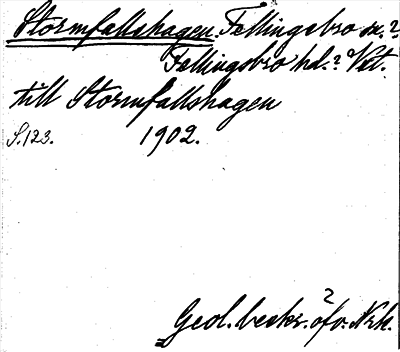 Stormfallshagen Fellingsbro sn.?
Fellingsbro hd.? Vstm.
till Stormfallshagen
S.123. 1902.
Geol. beskr. öfv. Nrk.